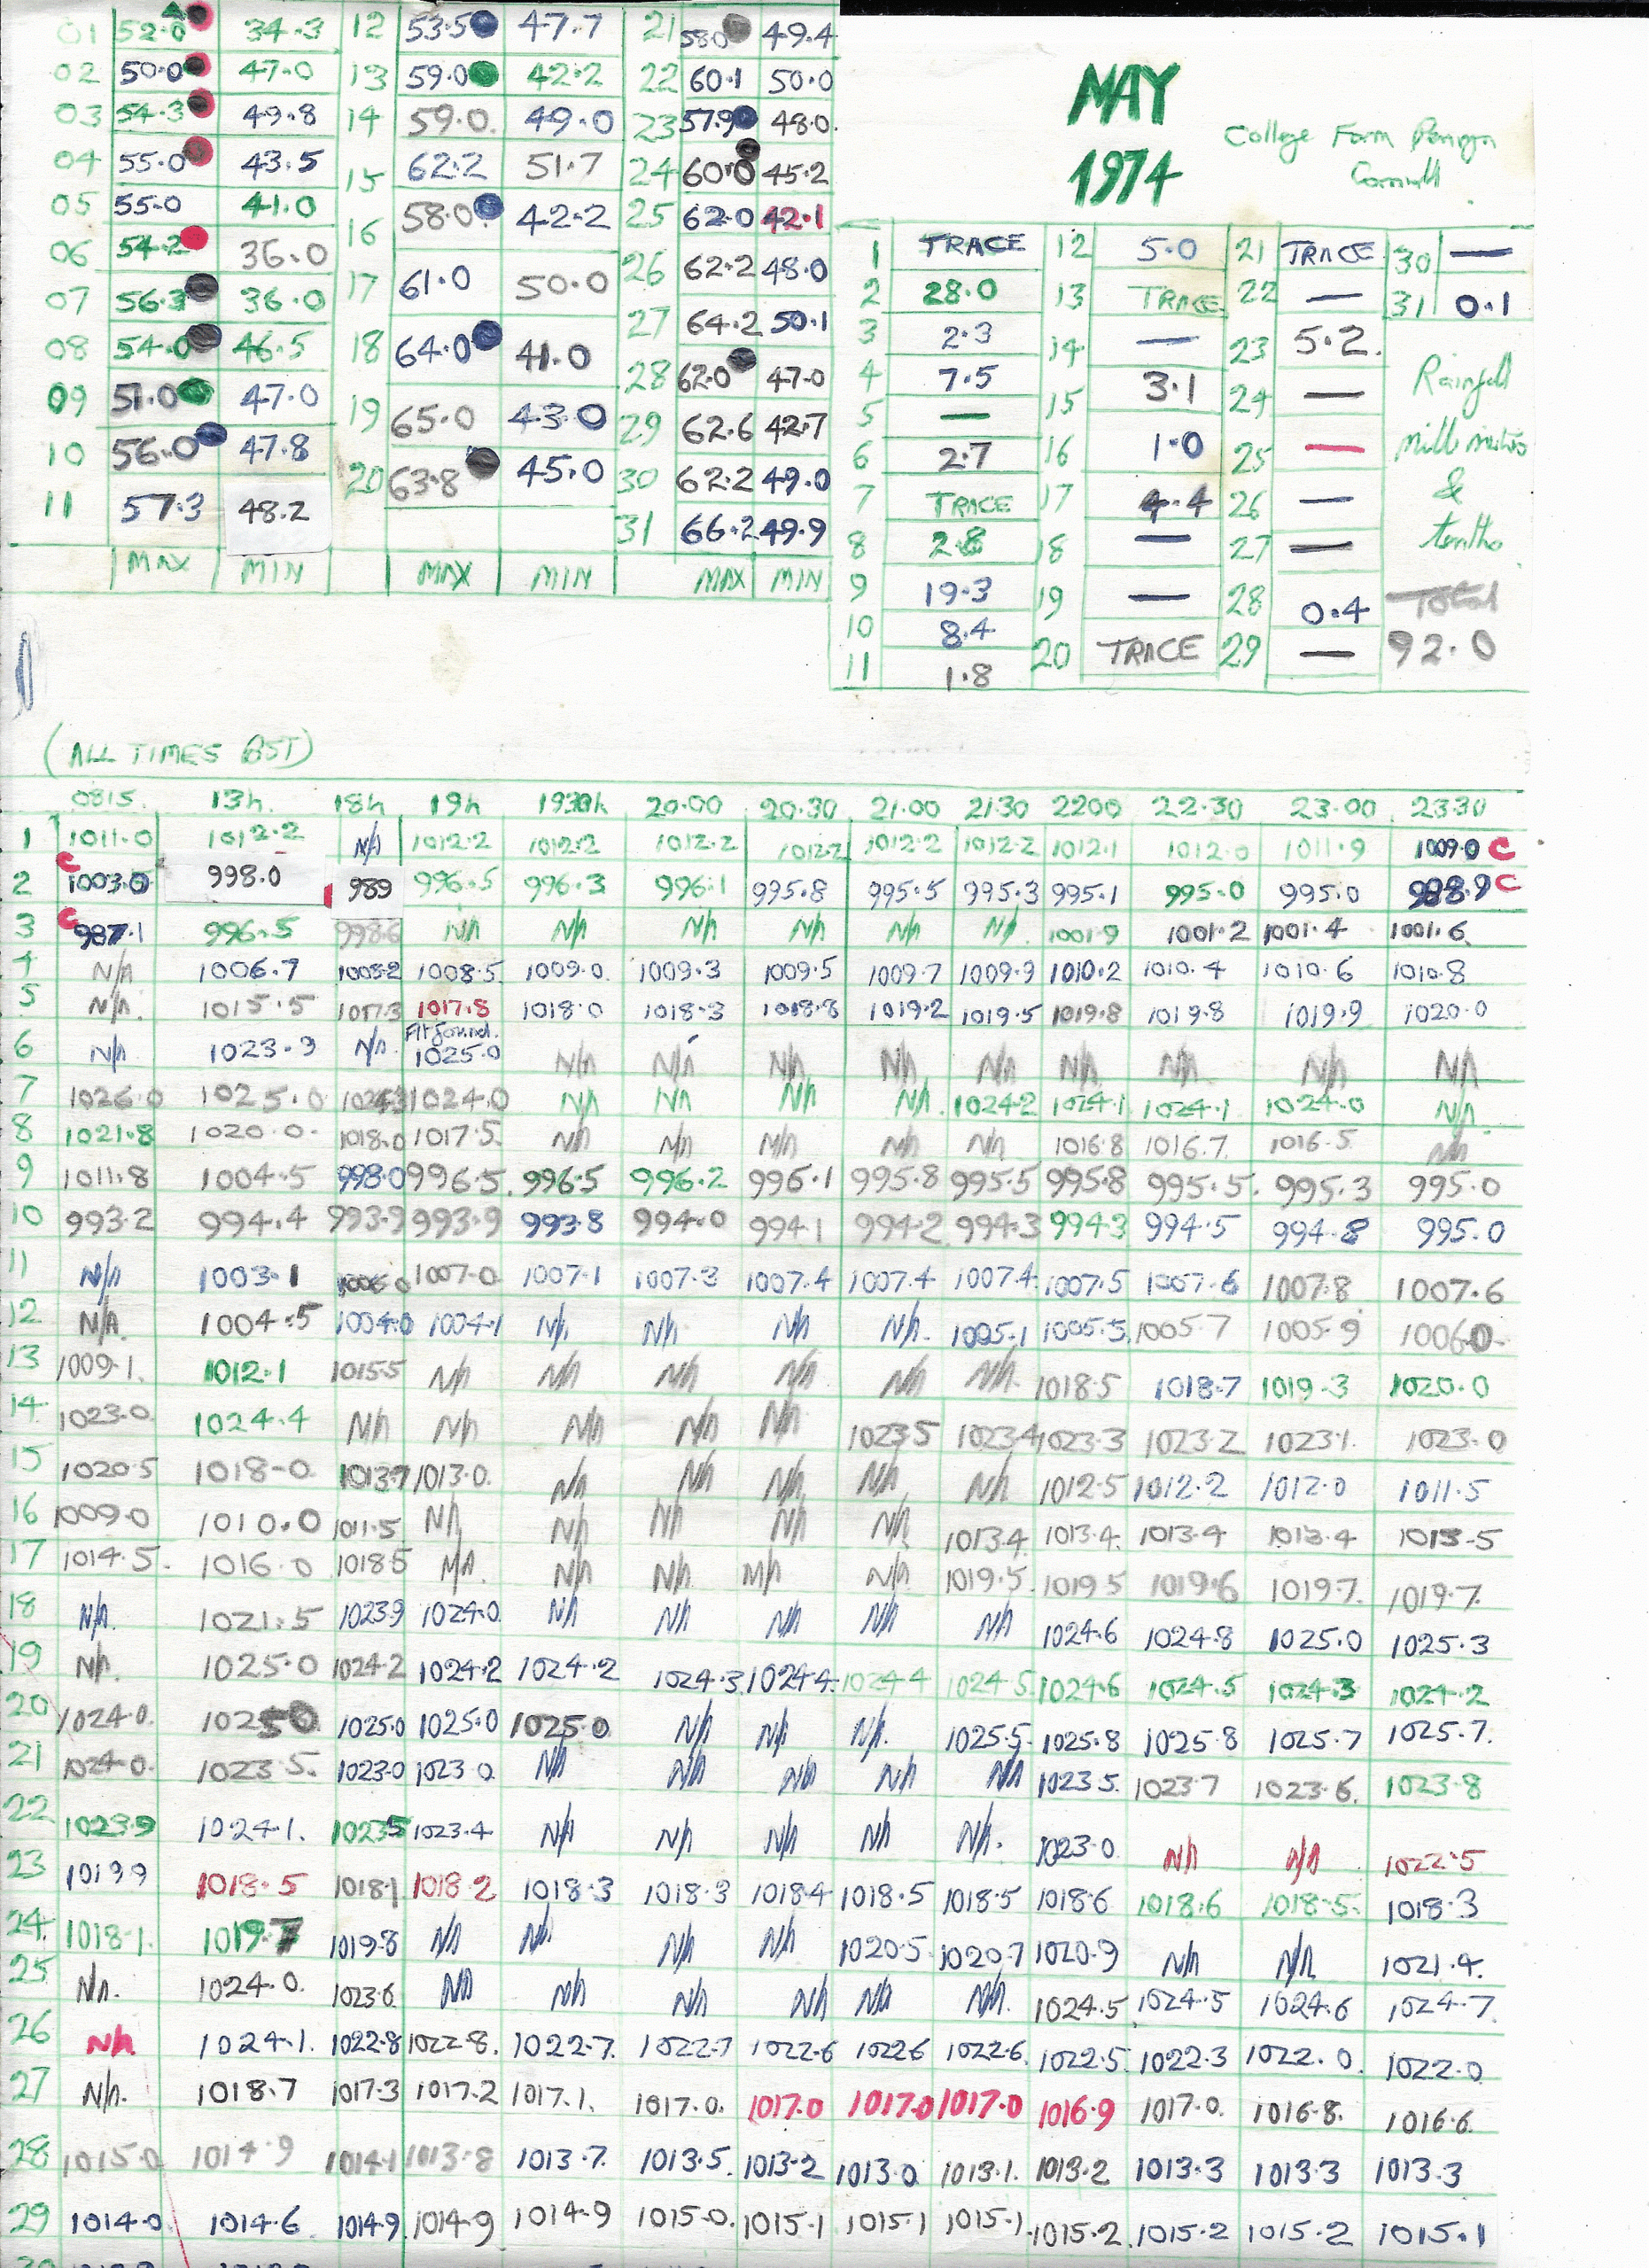 01 52.0 34.3 12 53.5 47.7 21 58.0 49.4
02 50.0 47.0 13 59.0 42.2 22 60.1 50.0
03 54.3 49.8 14 59.0 49.0 23 57.9 48.0
04 55.0 43.5 15 62.2 51.7 24 60.0 45.2
05 55.0 41.0 16 58.0 42.2 25 62.0 42.1
06 54.2 36.0 17 61.0 50.0 26 62.2 48.0
07 56.3 36.0 18 64.0 41.0 27 64.2 50.1
08 54.0 46.5 19 65.0 43.0 28 62.0 47.0
09 51.0 47.0 20 63.8 45.0 29 62.6 42.7
10 56.0 47.8 30 62.2 49.0
11 57.3 48.2 31 66.2 49.9
MAX MIN MAX MIN MAX MIN
MAY
1974
College Farm Penryn
Cornwall
1 TRACE 12 5.0 21 TRACE 30 —
2 28.0 13 TRACE 22 — 31 0.1
3 2.3 14 — 23 5.2
4 7.5 15 3.1 24 —
5 — 16 1.0 25 —
6 2.7 17 4.4 26 —
7 TRACE 18 — 27 —
8 2.8 19 — 28 0.4
9 19.3 20 TRACE 29 —
10 8.4
11 1.8
Rainfall
millimetres
&
tenths
Total
92.0
(ALL TIMES BST)
0815. 13h. 18h 19h 1930h 20.00 20.30 21.00 21.30 2200 22.30 23.00 23.30
1 1011.0 1012.2 N/A 1012.2 1012.2 1012.2 1012.2 1012.2 1012.2 1012.1 1012.0 1011.9 1009.0 C
2 C 1003.0 998.0 989 996.5 996.3 996.1 995.8 995.5 995.3 995.1 995.0 995.0 C
3 C 987.1 996.5 998.6 N/A N/A N/A N/A N/A N/A 1001.9 1001.2 1001.4 1001.6
4 N/A 1006.7 1008.2 1008.5 1009.0 1009.3 1009.5 1009.7 1009.9 1010.2 1010.4 1010.6 1010.8
5 N/A. 1015.5 1017.3 1017.8 1018.0 1018.3 1018.8 1019.2 1019.5 1019.8 1019.8 1019.9 1020.0
6 N/A 1023.9 N/A. 1025.0 N/A N/A N/A N/A N/A N/A N/A N/A N/A
7 1026.0 1025.0 1024.3 1024.0 N/A N/A N/A N/A. 1024.2 1024.1 1024.1 1024.0 N/A
8 1021.8 1020.0. 1018.0 1017.5 N/A N/A N/A N/A N/A 1016.8 1016.7. 1016.5 N/A
9 1011.8 1004.5 998.0 996.5. 996.5 996.2 996.1 995.8 995.5 995.8 995.5. 995.3 995.0
10 993.2 994.4 993.9 993.9 993.8 994.0 994.1 994.2 994.3 994.3 994.5 994.8 995.0
11 N/A 1003.1 1006.0 1007.0 1007.1 1007.3 1007.4 1007.4 1007.4 1007.5 1007.6 1007.8 1007.6
12 N/A. 1004.5 1004.0 1004.1 N/A N/A N/A N/A. 1005.1 1005.5 1005.7 1005.9 1006.0
13 1009.1. 1012.1 1015.5 N/A N/A N/A N/A N/A N/A. 1018.5 1018.7 1019.3 1020.0
14 1023.0 1024.4 N/A N/A N/A N/A N/A 1023.5 1023.4 1023.3 1023.2 1023.1. 1023.0
15 1020.5 1018-0. 1013.7 1013.0. N/A N/A N/A N/A N/A 1012.5 1012.2 1012.0 1011.5
16 1009.0 1010.0 1011.5 N/A N/A N/A N/A N/A 1013.4 1013.4. 1013.4 1013.4 1013.5
17 1014.5. 1016.0 1018.5 N/A. N/A N/A N/A N/A 1019.5. 1019.5 1019.6 1019.7. 1019.7.
18 N/A. 1021.5 1023.9 1024.0. N/A N/A N/A N/A N/A 1024.6 1024.8 1025.0 1025.3
19 N/A. 1025.0 1024.2 1024.2 1024.2 1024.3 1024.4 1024.4 1024.5 1024.6 1024.5 1024.3 1024.2
20 1024.0. 1025.0 1025.0 1025.0 1025.0 N/A N/A N/A. 1025.5 1025.8 1025.8 1025.7 1025.7.
21 1024.0. 1023.5. 1023.0 1023.0 N/A N/A N/A N/A N/A 1023.5. 1023.7 1023.6. 1023.8
22 1023.9 1024.1. 1023.5 1023.4 N/A N/A N/A N/A N/A. 1023.0 N/A N/A 1022.5
23 1019.9 1018.5 1018.1 1018.2 1018.3 1018.3 1018.4 1018.5 1018.5 1018.6 1018.6 1018.5. 1018.3
24 1018.1. 1019.7 1019.8 N/A N/A N/A N/A 1020.5 1020.7 1020.9 N/A N/A 1021.4.
25 N/A. 1024.0. 1023.6. N/A N/A N/A N/A N/A N/A. 1024.5 1024.5 1024.6 1024.7
26 N/A. 1024.1. 1022.8 1022.8. 1022.7. 1022.7 1022.6 1022.6 1022.6. 1022.5. 1022.3 1022.0. 1022.0
27 N/A. 1018.7 1017.3 1017.2 1017.1. 1017.0. 1017.0 1017.0 1017.0 1016.9 1017.0. 1016.8. 1016.6.
28 1015.0 1014.9 1014.1 1013.8 1013.7. 1013.5. 1013.2 1013.0 1013.1. 1013.2 1013.3 1013.3 1013.3
29 1014.0 1014.6. 1014.9 1014.9 1014.9 1015.0. 1015.1 1015.1 1015.1. 1015.2 1015.2 1015.2 1015.1